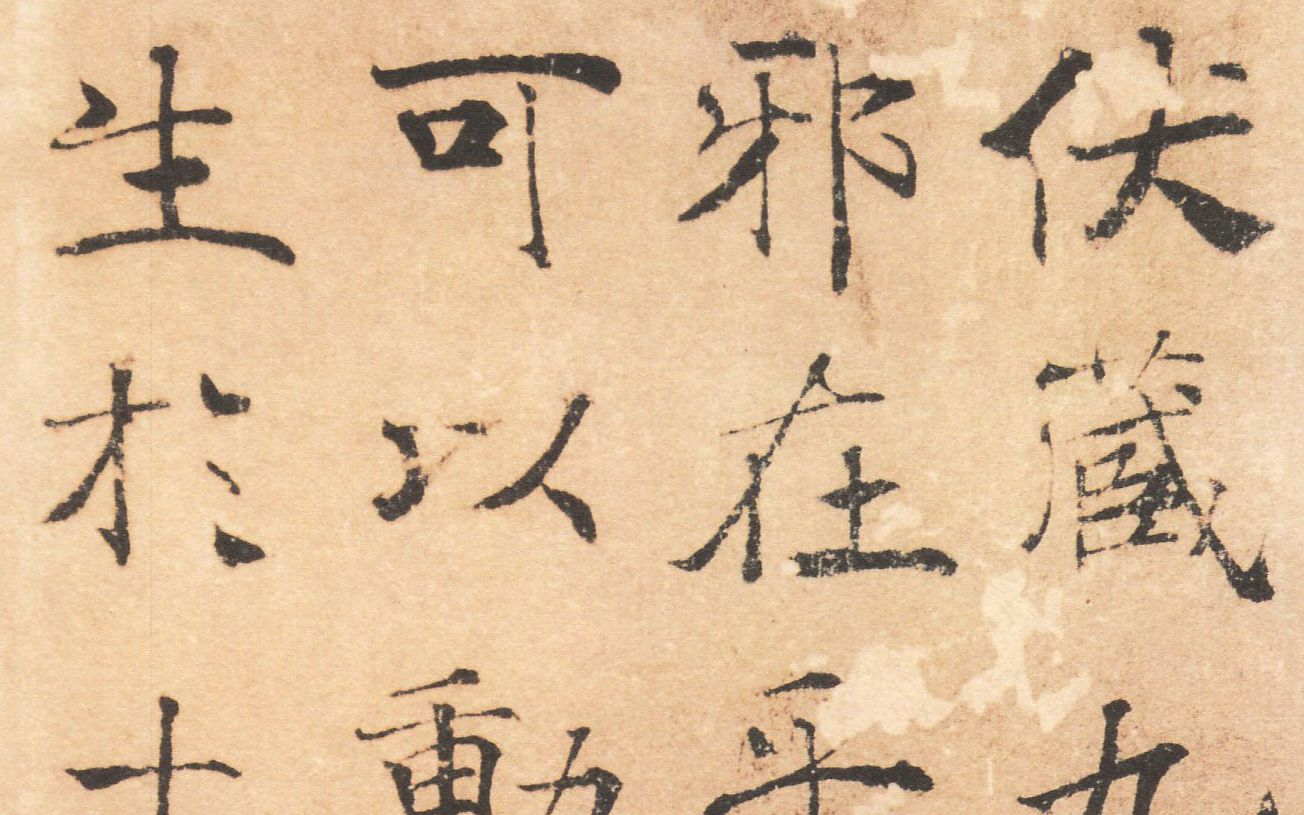 伏藏九
邪在乎
可以動
生於木